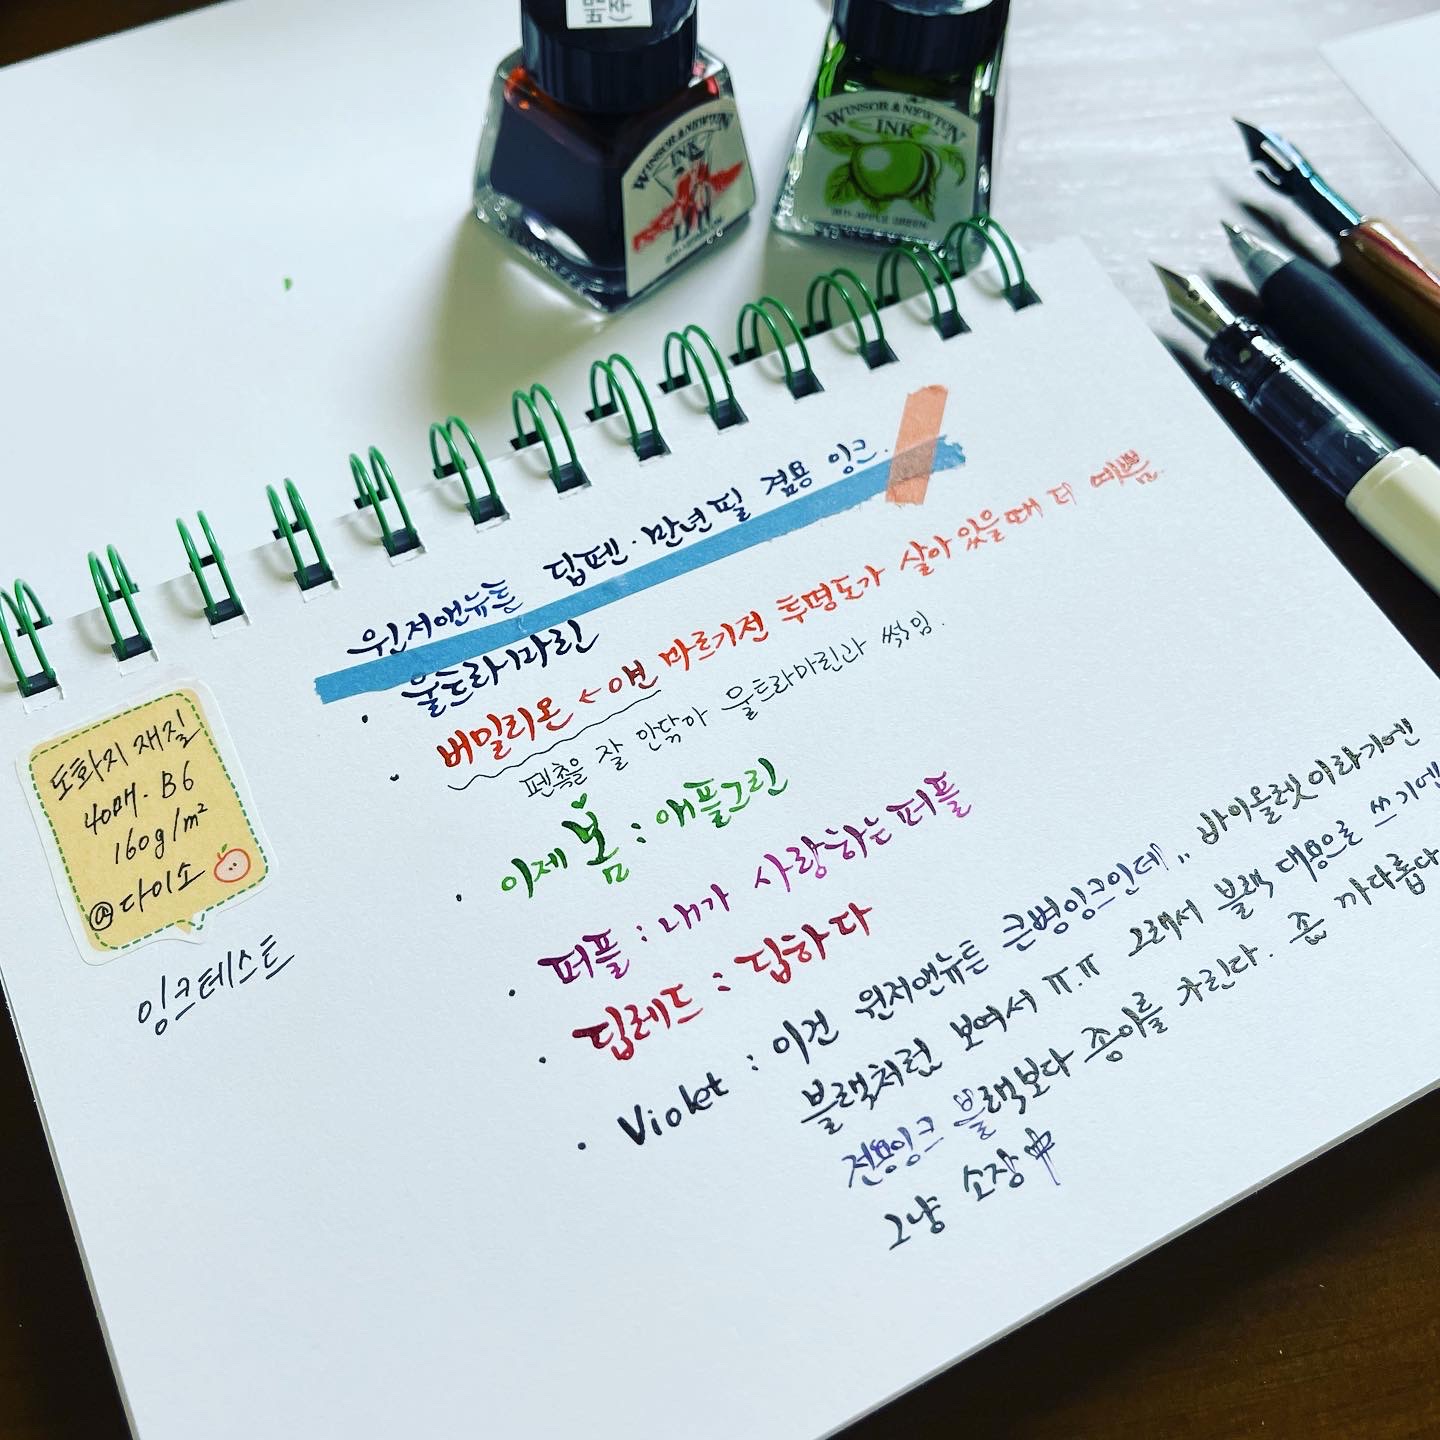 WINSOR & NEWTON
INK
WINSOR & NEWTON
INK
APPLE GREEN
윈저앤뉴튼 딥펜·만년필 겸용 잉크.
· 울트라마린
· 버밀리온 ← 이번 마르기전 투명도가 살아있을때 더 예쁨.
펜촉을 잘 안닦아 울트라마린과 썪임.
· 이제 봄 : 애플그린
· 퍼플 : 내가 사랑하는 퍼플
· 딥레드 : 딥하다
· Violet : 이건 윈저앤뉴튼 큰병잉크인데.. 바이올렛이라기엔
블랙처럼 보여서 ㅠ.ㅠ 그래서 블랙 대용으로 쓰기엔
전용잉크 블랙보다 종이를 가린다. 좀 까다롭다
그냥 소장中
도화지 재질
40매. B6
160g/m²
@다이소
잉크테스트